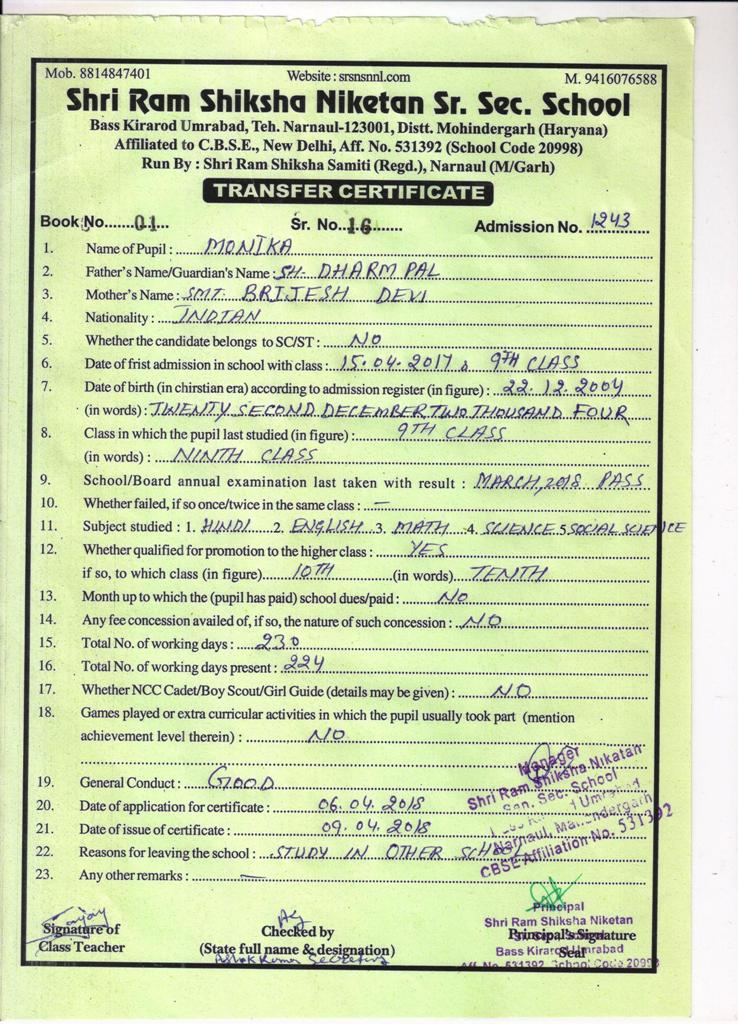 Mob. 8814847401 Website : srsnsnnl.com M. 9416076588
Shri Ram Shiksha Niketan Sr. Sec. School
Bass Kirarod Umrabad, Teh. Narnaul-123001, Distt. Mohindergarh (Haryana)
Affiliated to C.B.S.E., New Delhi, Aff. No. 531392 (School Code 20998)
Run By : Shri Ram Shiksha Samiti (Regd.), Narnaul (M/Garh)
TRANSFER CERTIFICATE
Book No.......01.... Sr. No..16....... Admission No. 1243
1. Name of Pupil : MONIKA
2. Father's Name/Guardian's Name : SH. DHARM PAL
3. Mother's Name : SMT. BRIJESH DEVI
4. Nationality : INDIAN
5. Whether the candidate belongs to SC/ST : NO
6. Date of frist admission in school with class : 15.04.2017 & 9TH CLASS
7. Date of birth (in chirstian era) according to admission register (in figure) : 22.12.2004
(in words) : TWENTY SECOND DECEMBER TWO THOUSAND FOUR
8. Class in which the pupil last studied (in figure) : 9TH CLASS
(in words) : NINTH CLASS
9. School/Board annual examination last taken with result : MARCH, 2018 PASS
10. Whether failed, if so once/twice in the same class : —
11. Subject studied : 1. HINDI 2. ENGLISH 3. MATH 4. SCIENCE 5 SOCIAL SCIENCE
12. Whether qualified for promotion to the higher class : YES
if so, to which class (in figure) 10TH (in words) TENTH
13. Month up to which the (pupil has paid) school dues/paid : NO
14. Any fee concession availed of, if so, the nature of such concession : NO
15. Total No. of working days : 230
16. Total No. of working days present : 224
17. Whether NCC Cadet/Boy Scout/Girl Guide (details may be given) : NO
18. Games played or extra curricular activities in which the pupil usually took part (mention
achievement level therein) : NO
19. General Conduct : GOOD
20. Date of application for certificate : 06.04.2018
21. Date of issue of certificate : 09.04.2018
22. Reasons for leaving the school : STUDY IN OTHER SCHOOL
23. Any other remarks : —
Manager
Shri Ram Shiksha Nikatan
Sen. Sec. School
Narnaul, Mahendergarh
CBSE Affiliation No. 531392
Principal
Shri Ram Shiksha Niketan
Bass Kirarod Umrabad
Aff. No. 531392 School Code 20998
Signature of
Class Teacher
Checked by
(State full name & designation)
Ashok Kumar Secretary
Principal's Signature
Seal